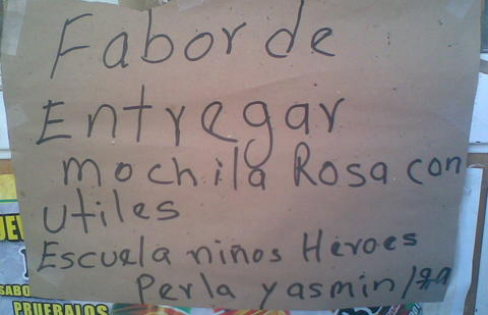 Fabor de
Entregar
mochila Rosa con
utiles
Escuela niños Héroes
Perla yasmin
SABO
PRUEBALOS